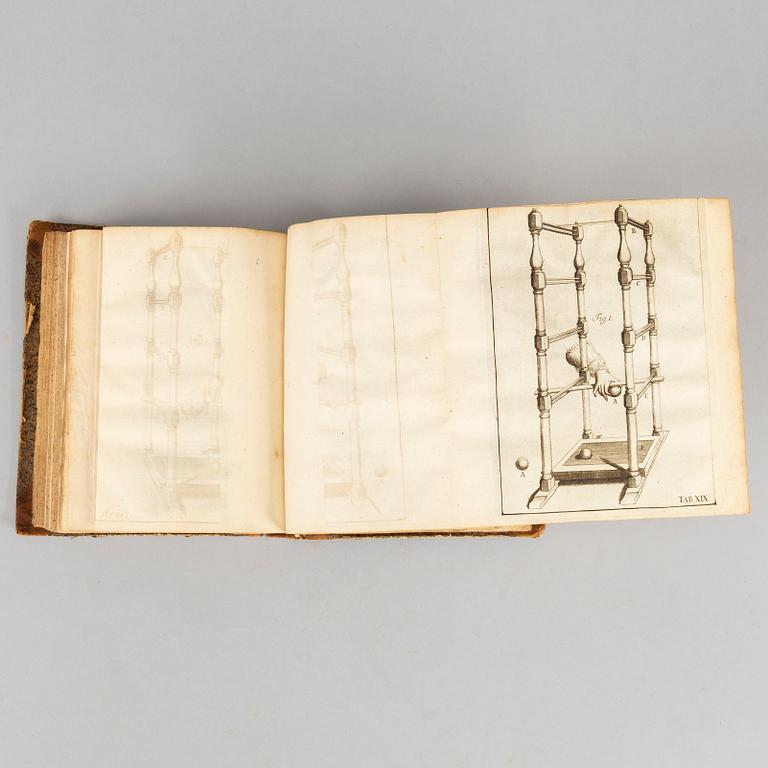 B
C
Fig. 1.
D
E
A
A
TAB. XIX